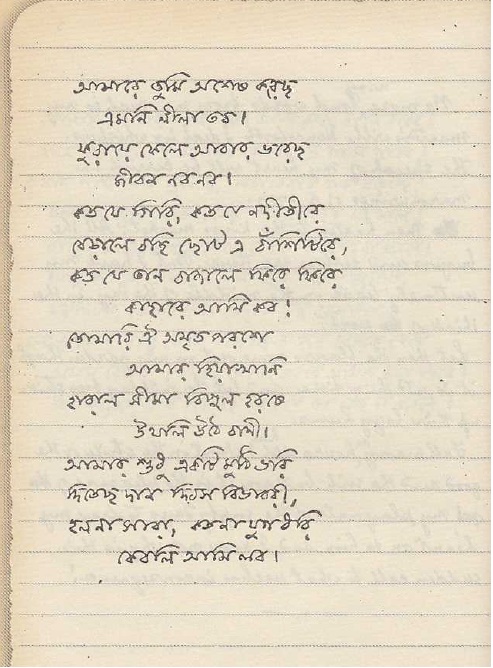 আমারে তুমি অশেষ করেছ
এমনি লীলা তব।
ফুরায়ে ফেলে আবার ভরেছ
জীবন নব নব।
কত যে গিরি, কত যে নদীতীরে
বেড়ালে বহি ছোট এ বাঁশিটিরে,
কত যে তান বাজালে ফিরে ফিরে
কাহারে আমি কব!
তোমারি ঐ অমৃত পরশে
আমার হিয়াখানি
হারাল সীমা বিপুল হরষে
উথলি উঠে বাণী।
আমার শুধু একটি মুঠি ভরি
দিতেছ দান দিবস বিভাবরী,
হলনা সারা, কতনা যুগ ধরি
কেবলি আমি লব।